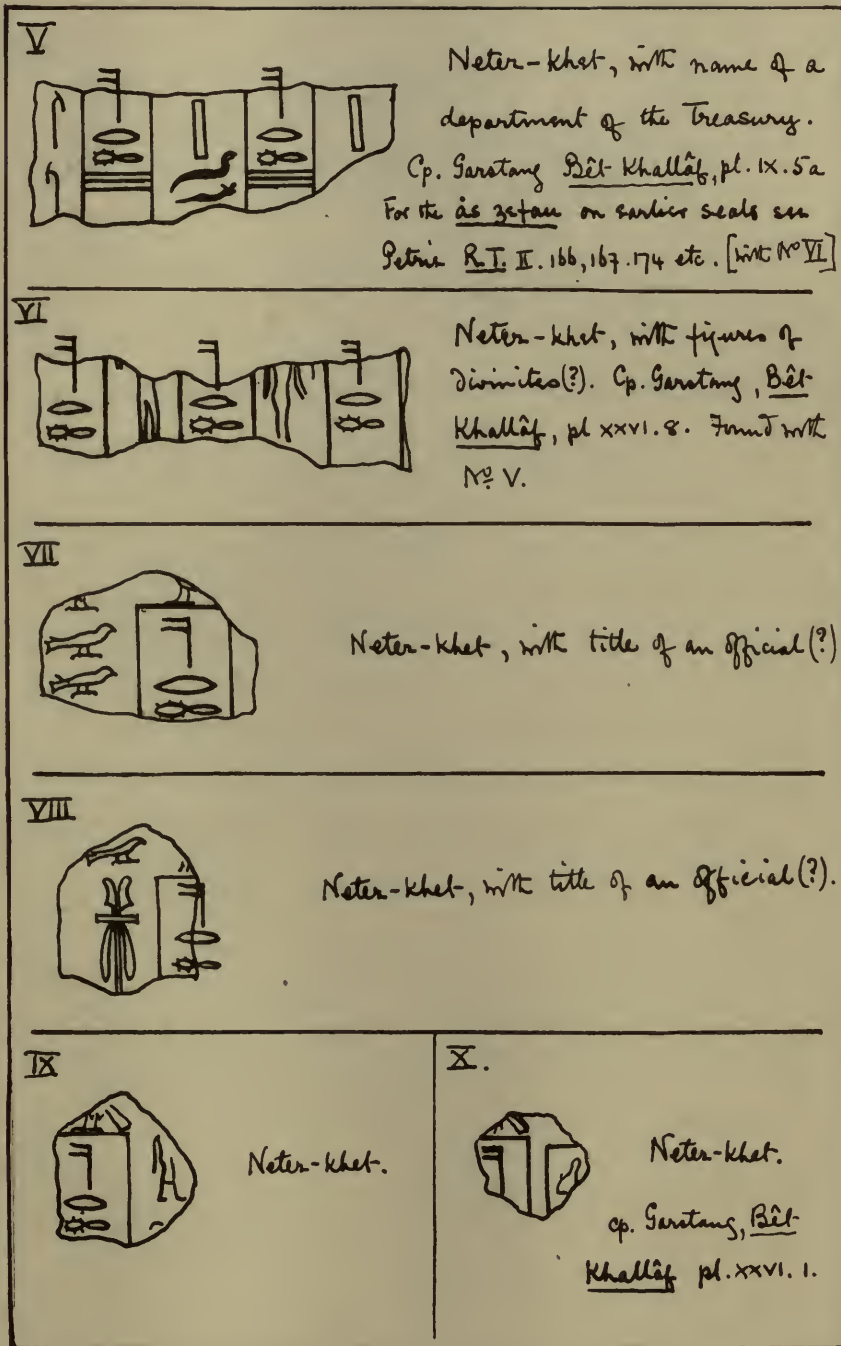 V
Neter-khet, with name of a
department of the Treasury.
Cp. Garstang Bêt Khallâf, pl. IX. 5a
For the às zefau on earlier seals see
Petrie R.T. II. 166, 167. 174 etc. [with Nº VI]
VI
Neter-khet, with figures of
divinities(?). Cp. Garstang, Bêt
Khallâf, pl XXVI. 8. Found with
Nº V.
VII
Neter-khet, with title of an official (?)
VIII
Neter-khet, with title of an official (?).
IX
Neter-khet.
X.
Neter-khet.
cp. Garstang, Bêt
Khallâf pl. XXVI. 1.